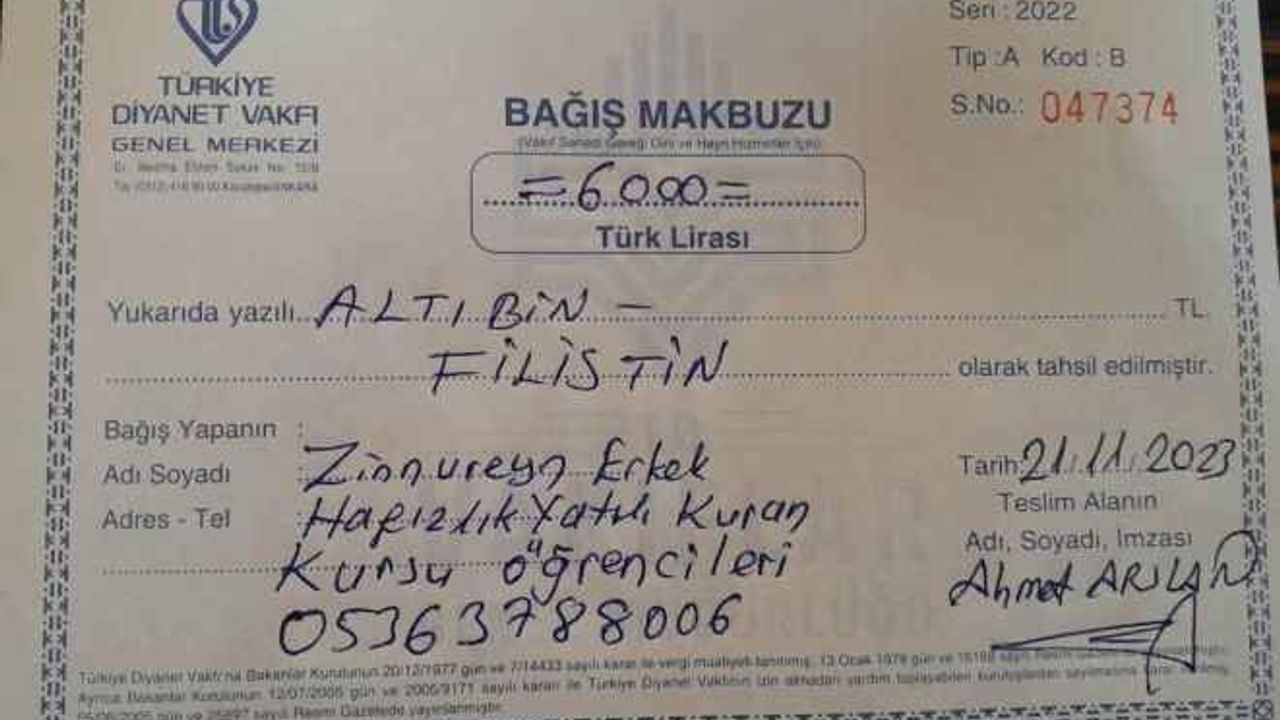 TÜRKİYE
DİYANET VAKFI
GENEL MERKEZİ
Seri : 2022
Tip :A Kod : B
S.No.: 047374
BAĞIŞ MAKBUZU
(Vakıf Senedi Gereği Dini ve Hayri Hizmetler İçin)
=6000=
Türk Lirası
Yukarıda yazılı ALTI BİN — TL.
FİLİSTİN olarak tahsil edilmiştir.
Bağış Yapanın :
Adı Soyadı : Zinnureyn Erkek
Adres - Tel : Hafızlık Yatılı Kuran
Kursu öğrencileri
05363788006
Tarih: 21.11.2023
Teslim Alanın
Adı, Soyadı, İmzası
Ahmet ARSLAN
Türkiye Diyanet Vakfı'na Bakanlar Kurulunun 20/12/1977 gün ve 7/14433 sayılı kararı ile vergi muafiyeti tanınmış, 13 Ocak 1978 gün ve
Ayrıca Bakanlar Kurulunun 12/07/2005 gün ve 2005/9171 sayılı kararı ile Türkiye Diyanet Vakfının izin almadan yardım toplayabilen kuruluşlardan sayılmasına karar verilmiş,
sayılı Resmi Gazetede yayınlanmıştır.